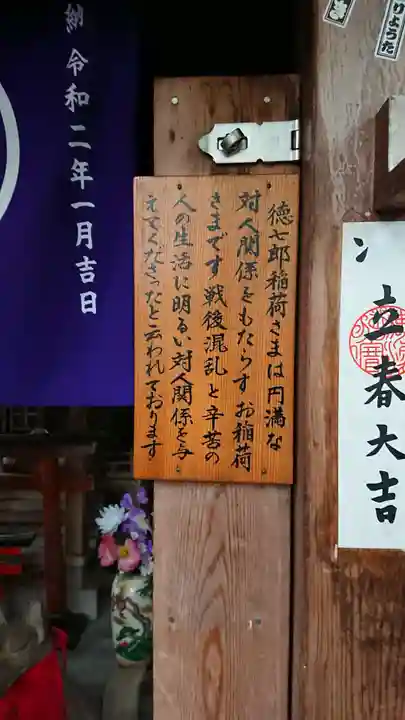 徳七郎稲荷さまは円満な
対人関係をもたらすお稲荷
さまです 戦後混乱と辛苦の
人の生活に明るい対人関係を与
えてくださったと云われております
立春大吉
りょうた
納 令和二年一月吉日